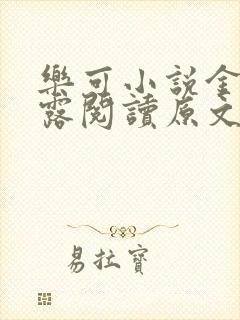 樂可小説金
露閱讀原文
易拉寶